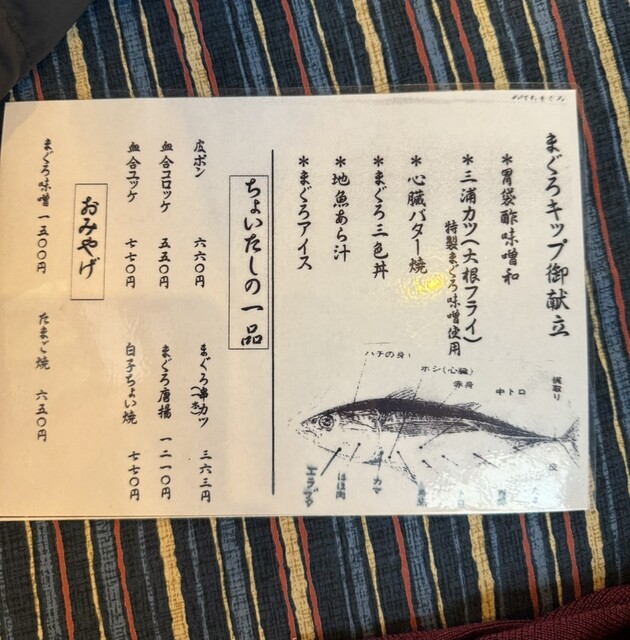 まぐろキップ御献立
*胃袋酢味噌和
*三浦カツ(大根フライ)
特製まぐろ味噌使用
*心臓バター焼
*まぐろ三色丼
*地魚あら汁
*まぐろアイス
ハチの身
ホシ(心臓)
赤身
中トロ
エラブタ
ほほ肉
カマ
皮
ちょいたしの一品
皮ポン 六六〇円
まぐろ串カツ 三六三円
血合コロッケ 五五〇円
まぐろ唐揚 一二一〇円
血合ユッケ 七七〇円
白子ちょい焼 七七〇円
おみやげ
まぐろ味噌 一五〇〇円
たまご焼 六五〇円